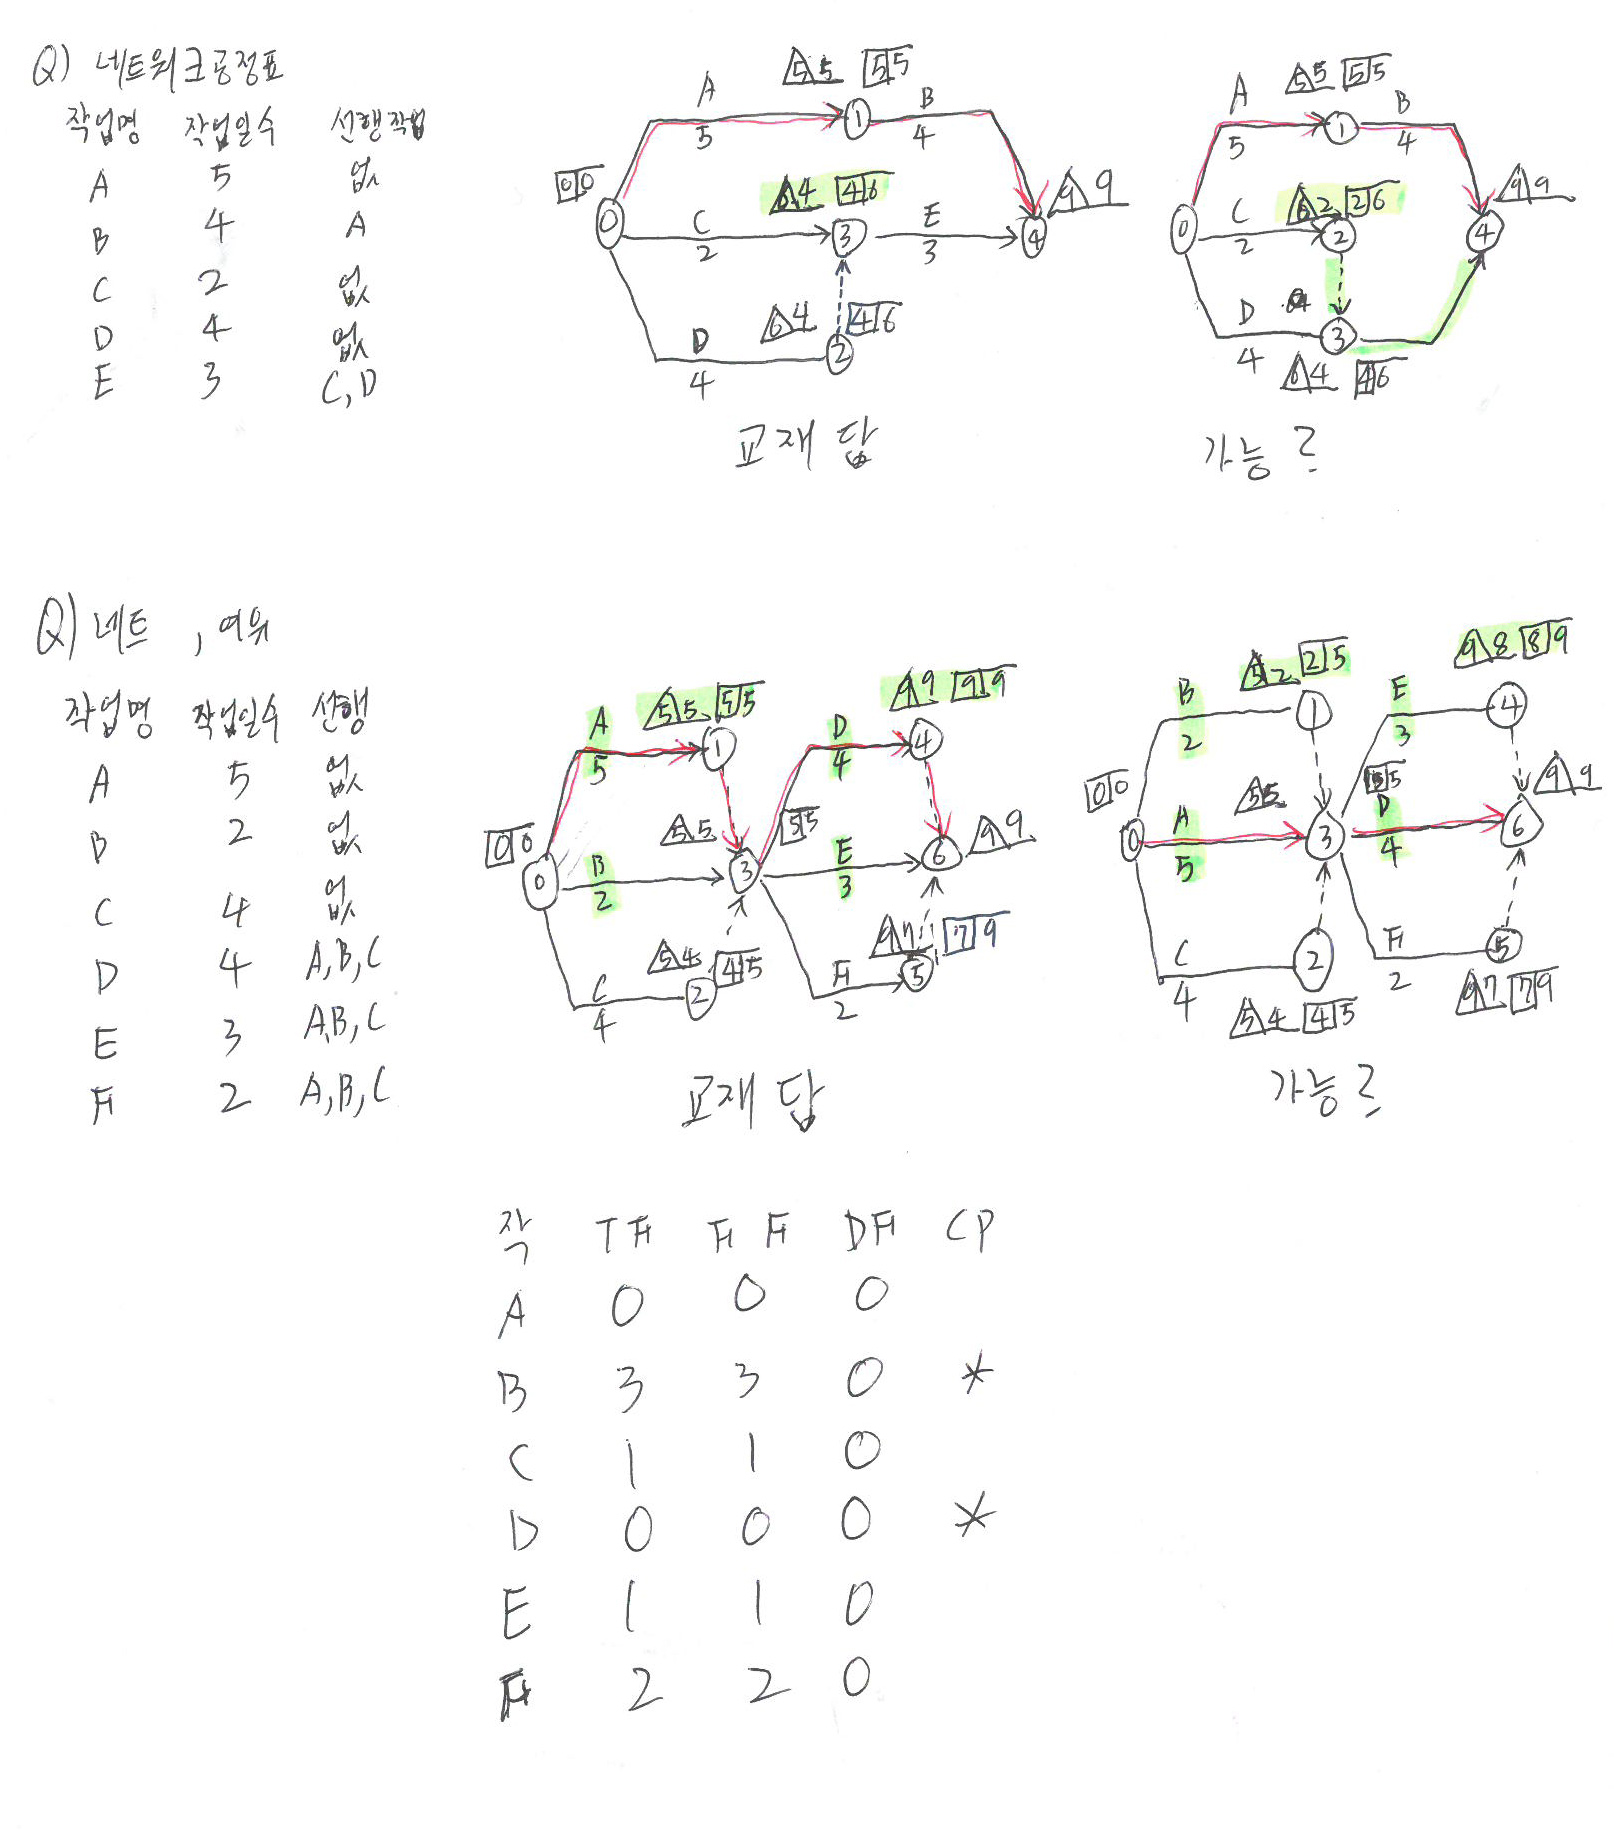 Q) 네트워크공정표
작업명 작업일수 선행작업
A 5 없
B 4 A
C 2 없
D 4 없
E 3 C, D
A 5
B 4
C 2
E 3
D 4
0
1
2
3
4
0 0
5 5 5 5
6 4 4 6
6 4 4 6
9 9
교재 답
A 5
B 4
C 2
D 4
0
1
2
3
4
5 5 5 5
6 2 2 6
6 4 4 6
9 9
가능?
Q) 네트 , 여유
작업명 작업일수 선행
A 5 없
B 2 없
C 4 없
D 4 A, B, C
E 3 A, B, C
F 2 A, B, C
A 5
B 2
C 4
D 4
E 3
F 2
0
1
2
3
4
5
6
0 0
5 5 5 5
5 5 5 5
5 4 4 5
9 9 9 9
9 7 7 9
9 9
교재 답
B 2
A 5
C 4
E 3
D 4
F 2
0
1
2
3
4
5
6
0 0
5 2 2 5
5 5 5 5
5 4 4 5
9 8 8 9
9 7 7 9
9 9
가능?
작 TF FF DF CP
A 0 0 0
B 3 3 0 *
C 1 1 0
D 0 0 0 *
E 1 1 0
F 2 2 0